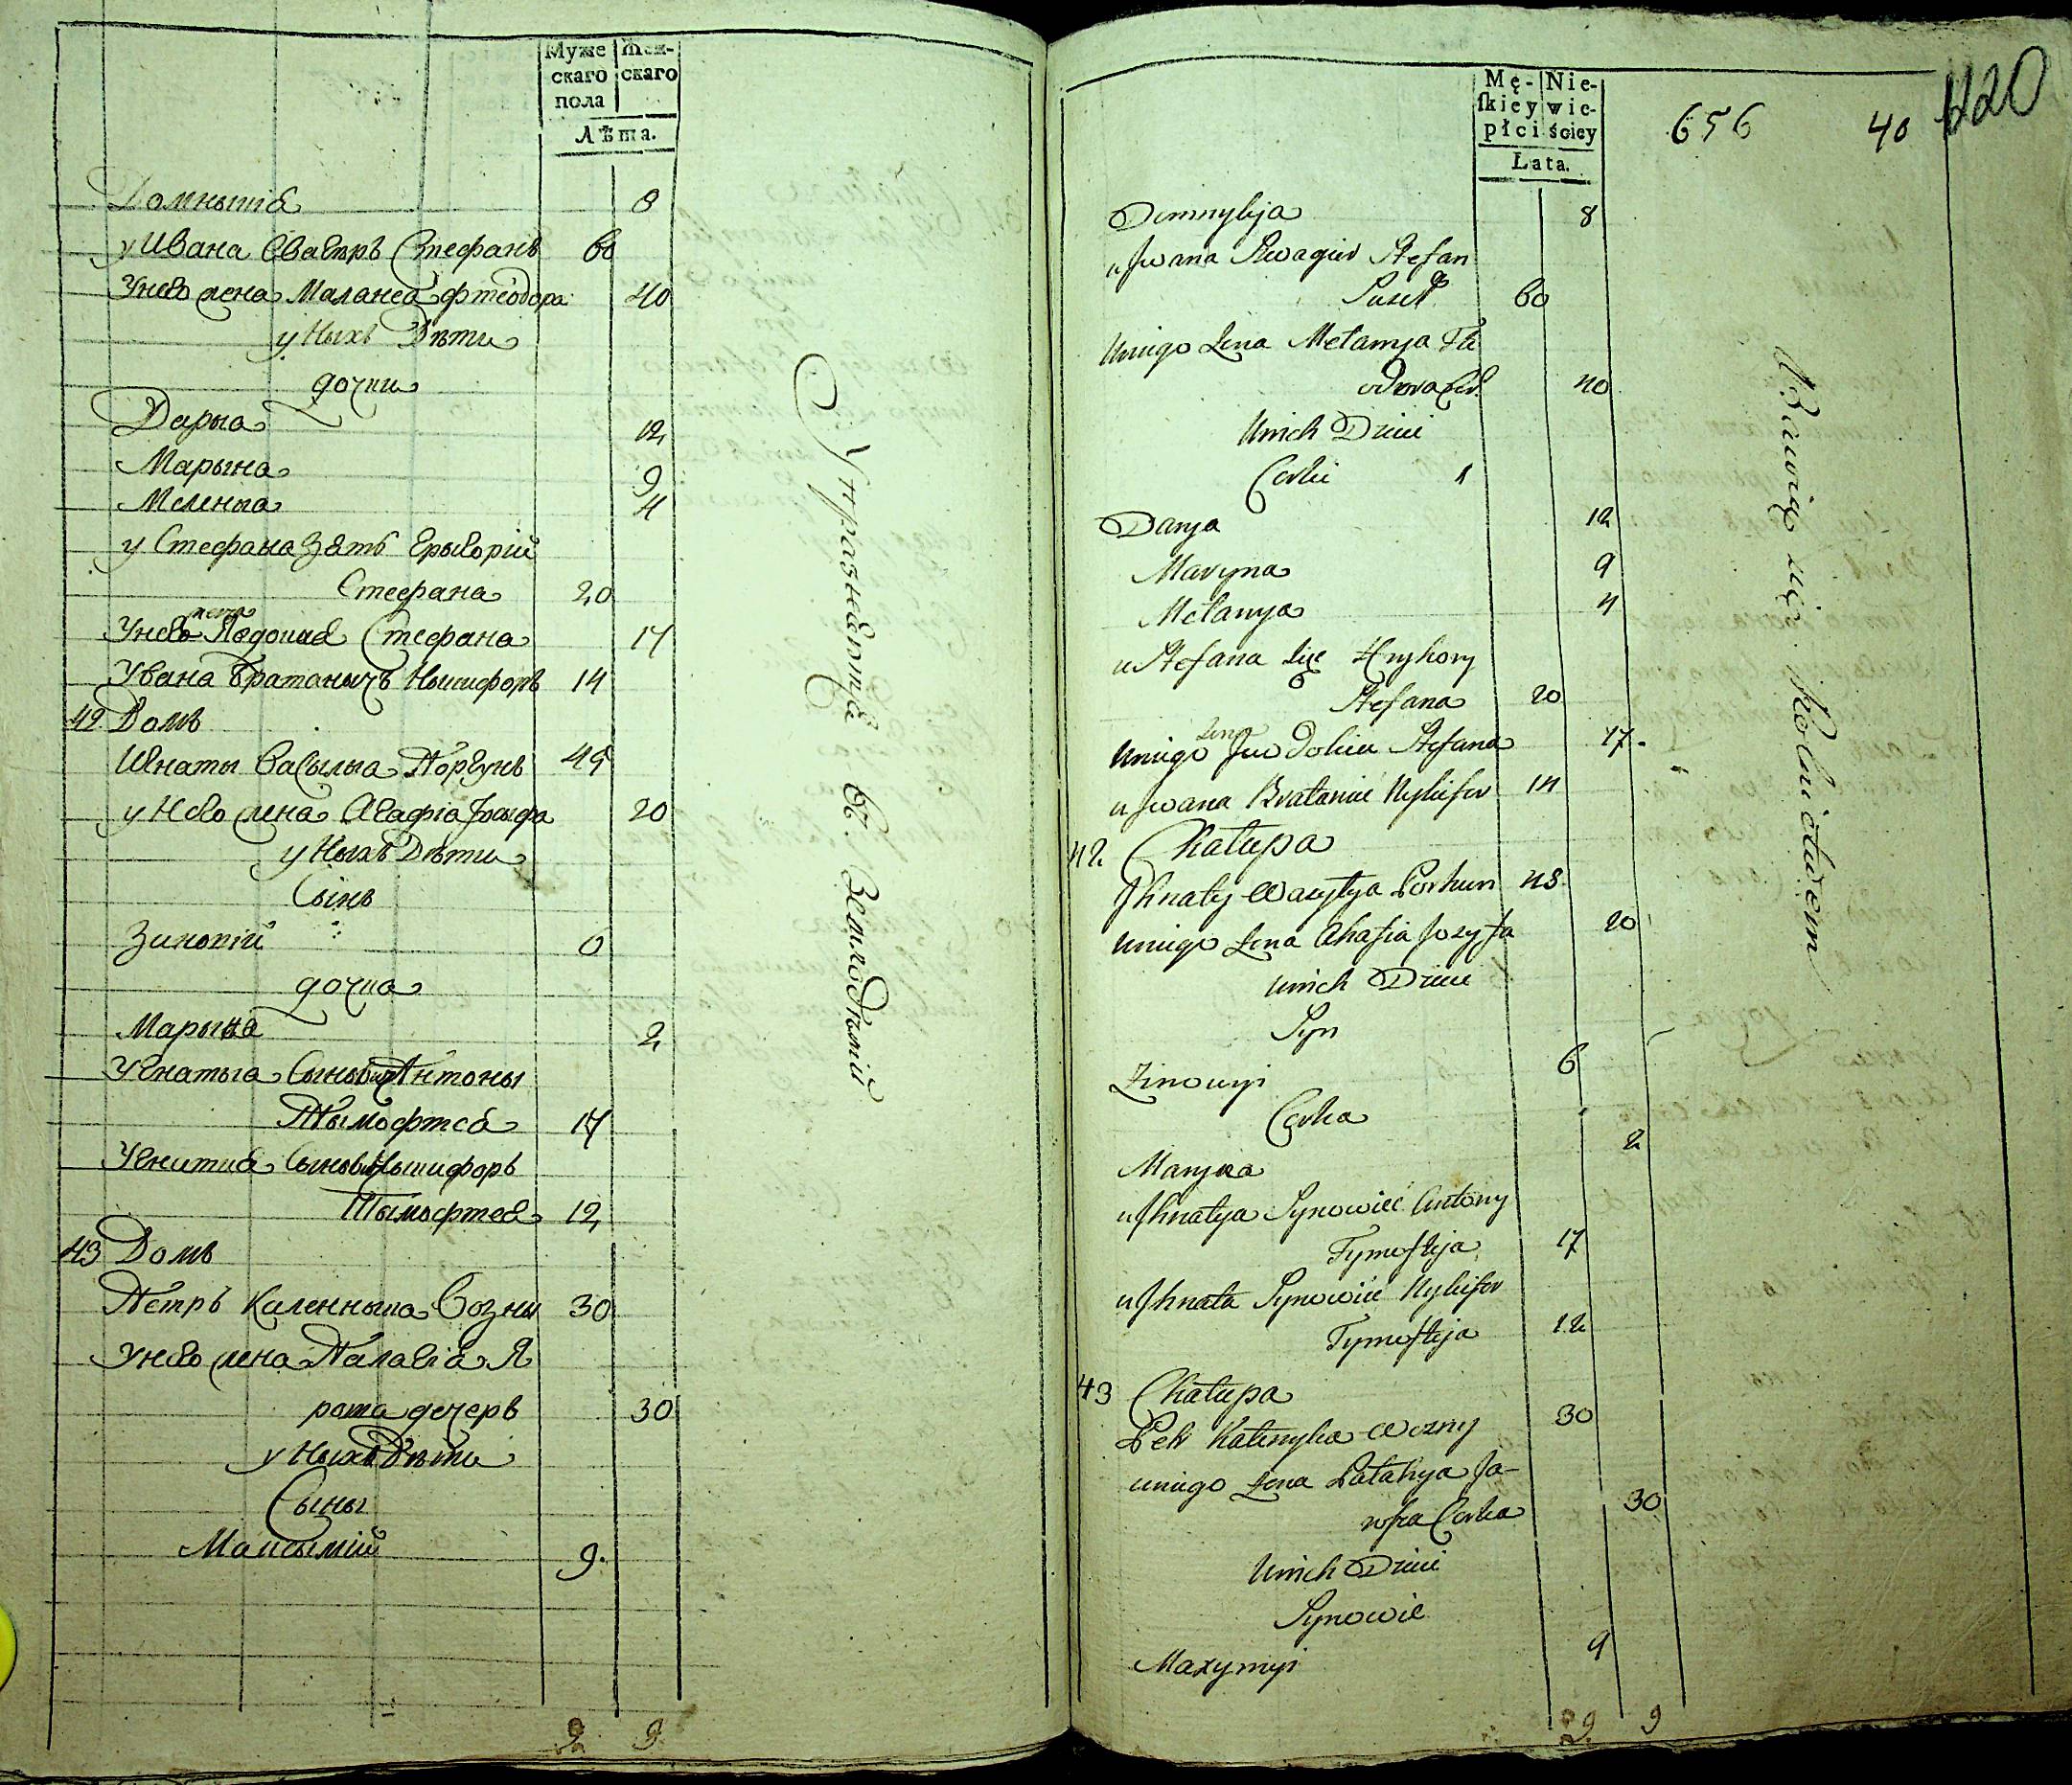 Муже
скаго
пола
Жен-
скаго
Лѣта.
Домныкія 8
у Ивана Свагиръ Стефанъ 60
У него жена Маланея Фтеодора 40
у Ныхъ Дѣти
дочки
Дарыа 12
Марына 9
Меленыа 4
у Стефана Зять Грыгорій
Стефана 20
У него жена Явдокия Стефана 17
У Ивана Братанычъ Ныкифоръ 14
42 Домъ
Игнаты Васылыа Поргунъ 45
у Него жена Агафіа Іозыфа 20
у Ныхъ Дѣти
Сынъ
Зиновій 6
дочка
Марына 2
У Игнатыа Сыновецъ Антоны
Тымофтея 17
У Игната Сыновецъ Ныкифоръ
Тымофтея 12
43 Домъ
Петръ Каленныка Возны 30
У него жена Палагія Я
рота дочеръ 30
у Ныхъ Дѣти
Сыны
Максымій 9.
9 9
Упражняютця въ Земледѣлій
Mę-
skiey
płci
Nie-
wie-
ściey
Lata.
656 40 420
Domnykja 8
u Jwana Szwagier Stefan
60
u niego Żena Melanya Fte
odora Cor. 40
u nich Dzieci
Corki
Darya 12
Maryna 9
Melanya 4
u Stefana Zięć Hryhory
Stefana 20
u niego Żena Jewdokia Stefana 17.
u Jwana Bratanic Nykifor 14
42 Chałupa
Jhnaty Wasylya Porhun 45
u niego Żena Ahafia Jozyfa 20
u nich Dzieci
Syn
Zinowyi 6
Corka
Maryna 2
u Jhnatya Synowiec Antony
Tymoftija 17
u Jhnata Synowiec Nykifor
Tymoftija 12
43 Chałupa
Petr Kalenyka Wozny 30
u niego Żena Palahya Ja-
rosza Corka 30
u nich Dzieci
Synowie
Maxymyi 9
9 9
Bawią się Rolnictwem